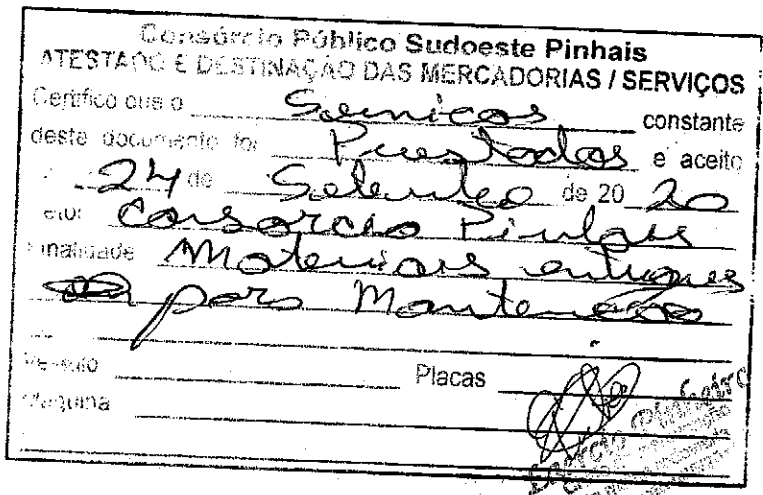 Consórcio Público Sudoeste Pinhais
ATESTADO E DESTINAÇÃO DAS MERCADORIAS / SERVIÇOS
Certifico que o Serviços constante
deste documento foi Prestados e aceito
24 de Setembro de 20 20
etor Consorcio Pinhais
Finalidade Materiais entregues
para Manutenção
Veículo Placas
Maquina
Pinheiro